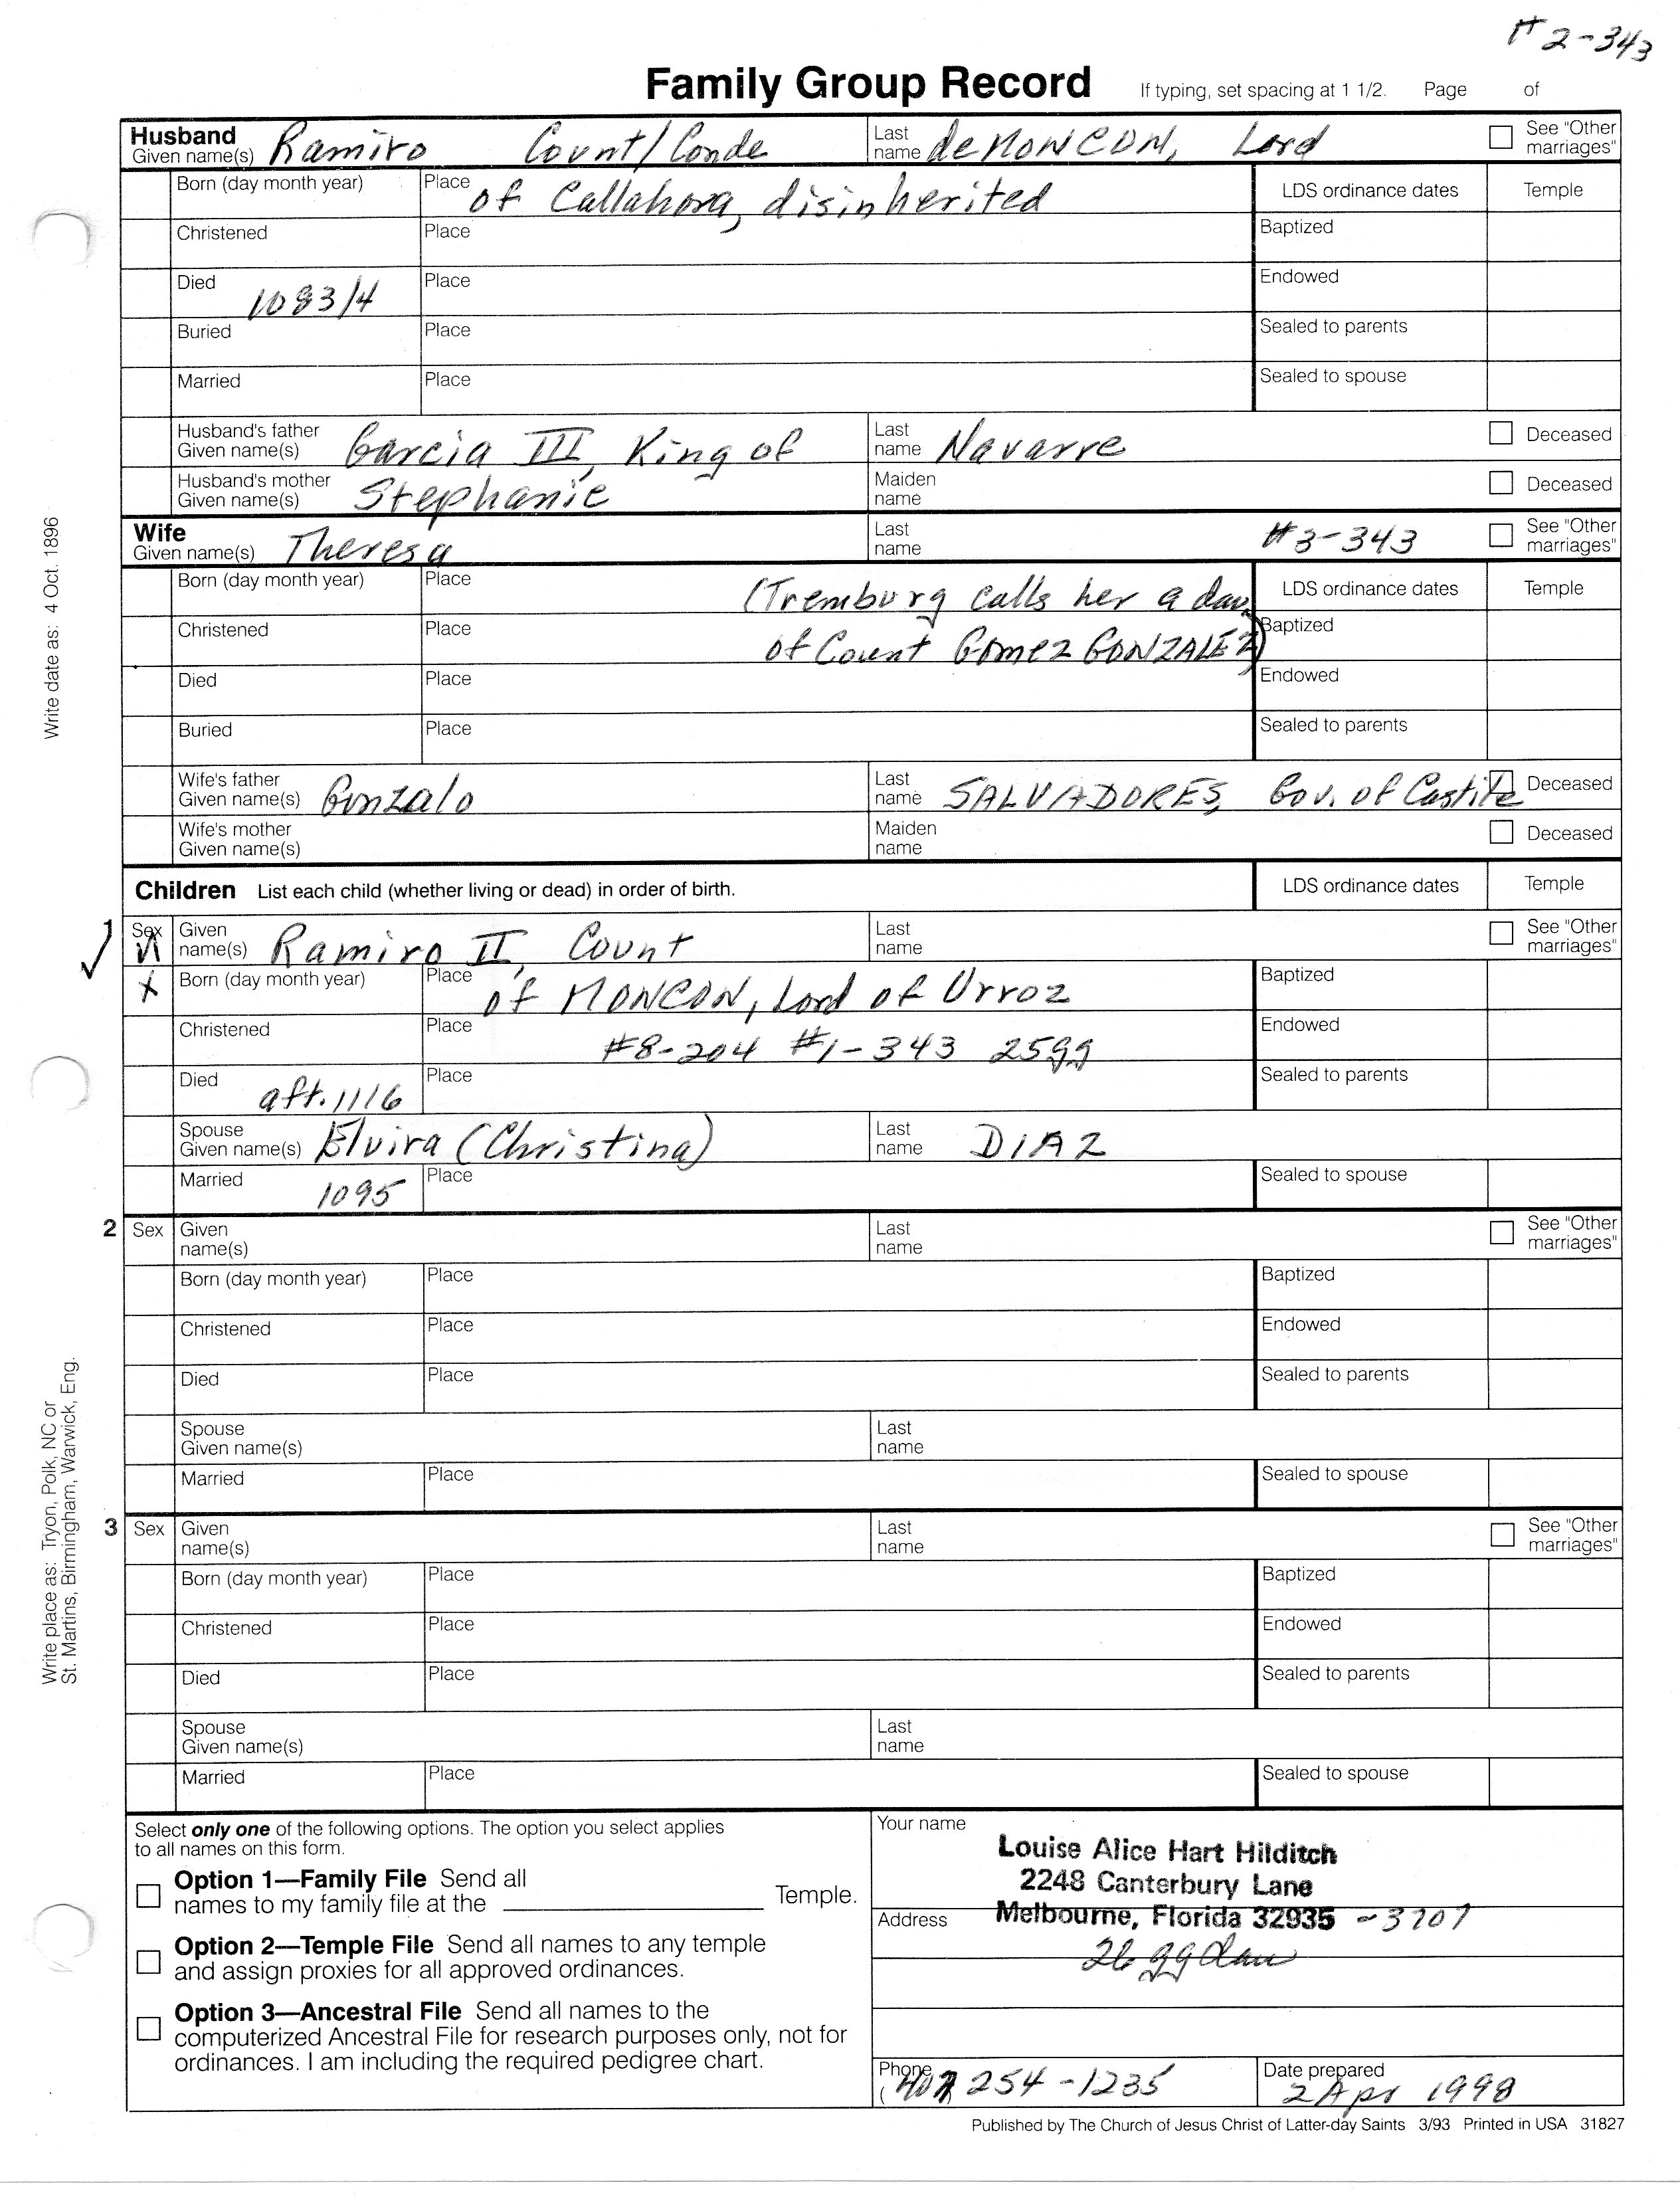 # 2-343
Family Group Record If typing, set spacing at 1 1/2. Page of
Husband
Given name(s) Ramiro Count/Conde Last name de MONCON, Lord See "Other marriages"
Born (day month year) Place of Callahora, disinherited LDS ordinance dates Temple
Christened Place Baptized
Died 1083/4 Place Endowed
Buried Place Sealed to parents
Married Place Sealed to spouse
Husband's father
Given name(s) Garcia III, King of Last name Navarre Deceased
Husband's mother
Given name(s) Stephanie Maiden name Deceased
Wife
Given name(s) Theresa Last name #3-343 See "Other marriages"
Born (day month year) Place (Tremburg calls her a dau. LDS ordinance dates Temple
Christened Place of Count Gomez GONZALEZ) Baptized
Died Place Endowed
Buried Place Sealed to parents
Wife's father
Given name(s) Gonzalo Last name SALVADORES, Gov. of Castile Deceased
Wife's mother
Given name(s) Maiden name Deceased
Children List each child (whether living or dead) in order of birth. LDS ordinance dates Temple
1 Sex Given name(s) Ramiro II, Count Last name See "Other marriages"
X Born (day month year) Place of MONCON, Lord of Urroz Baptized
Christened Place #8-204 #1-343 25gg Endowed
Died aft. 1116 Place Sealed to parents
Spouse
Given name(s) Elvira (Christina) Last name DIAZ
Married 1095 Place Sealed to spouse
2 Sex Given name(s) Last name See "Other marriages"
Born (day month year) Place Baptized
Christened Place Endowed
Died Place Sealed to parents
Spouse
Given name(s) Last name
Married Place Sealed to spouse
3 Sex Given name(s) Last name See "Other marriages"
Born (day month year) Place Baptized
Christened Place Endowed
Died Place Sealed to parents
Spouse
Given name(s) Last name
Married Place Sealed to spouse
Select only one of the following options. The option you select applies
to all names on this form.
Option 1—Family File Send all
names to my family file at the Temple.
Option 2—Temple File Send all names to any temple
and assign proxies for all approved ordinances.
Option 3—Ancestral File Send all names to the
computerized Ancestral File for research purposes only, not for
ordinances. I am including the required pedigree chart.
Your name
Louise Alice Hart Hilditch
2248 Canterbury Lane
Address Melbourne, Florida 32935 -3707
26 gg dau
Phone (407 254-1235 Date prepared 2 Apr 1998
Published by The Church of Jesus Christ of Latter-day Saints 3/93 Printed in USA 31827
Write date as: 4 Oct. 1896
Write place as: Tryon, Polk, NC or
St. Martins, Birmingham, Warwick, Eng.